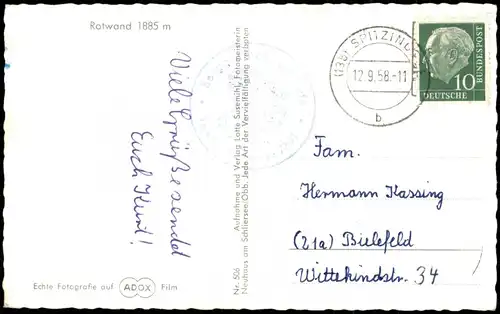 Rotwand 1885 m
Viele Grüße sendet
Euch Kurt!
Echte Fotografie auf ADOX Film
Nr. 506
Aufnahme und Verlag Lotte Susemihl, Fotomeisterin
Neuhaus am Schliersee/Obb. Jede Art der Vervielfältigung verboten
(13b) SPITZING
12.9.58-11
b
10
DEUTSCHE
BUNDESPOST
Fam.
Hermann Kassing
(21a) Bielefeld
Wittekindstr. 34